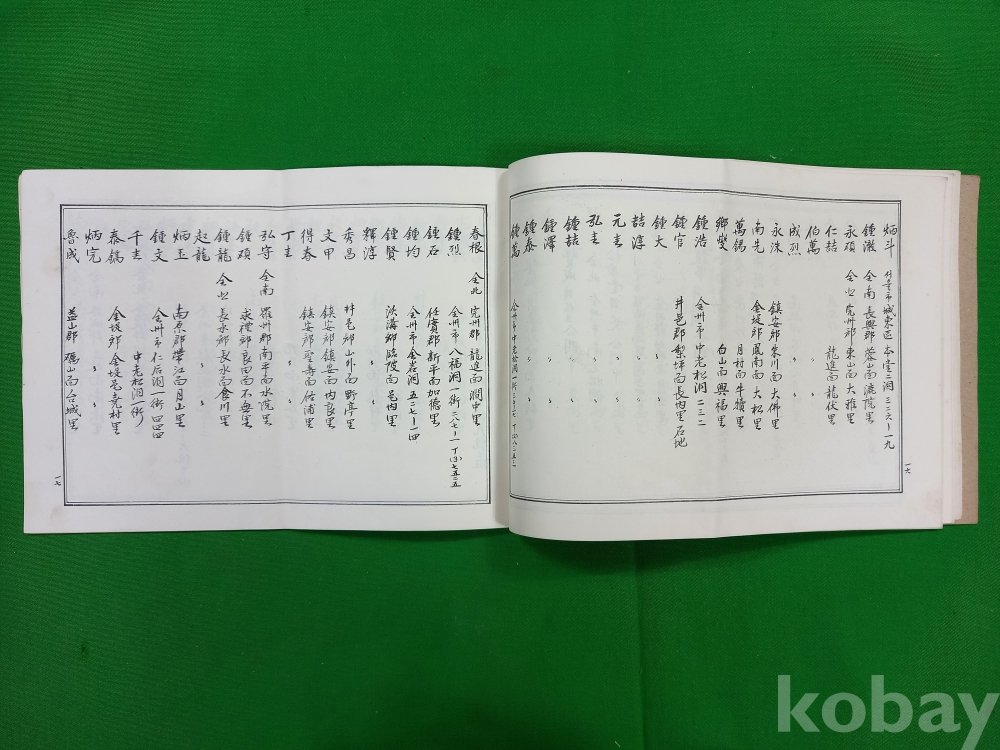 炳斗 서울市城東區 本堂二洞 三二六ノ一九
鍾瀲 全南 長興郡 蓉山面 漁院里
永碩 全北 完州郡 東山面 大雅里
仁喆 龍進面 龍伏里
伯萬
成烈 〃 〃
永洙 鎮安郡 朱川面 大佛里
南先 金堤郡 鳳南面 大松里
萬錫 月村面 牛犢里
鄉燮 白山面 興福里
鍾浩 全州市 中老松洞 二三二
鍾官 井邑郡 梨坪面 長內里 石地
鍾大 〃 〃
喆淳 〃 〃
元圭 〃 〃
弘圭 〃 〃
鍾喆 〃 〃
鍾澤 〃 〃
鍾泰 〃 〃
鍾萬 全州市 中老松洞 一街
一七
春根 全北 完州郡 龍進面 澗中里
鍾烈 全州市 八福洞 一街 二八七ノ一 T(3)七五二五
鍾石 任實郡 新平面 加德里
鍾均 全州市 金岩洞 五二七ノ一四
鍾賢 沃溝郡 臨陂面 邑內里
釋淳 〃 〃
秀昌 井邑郡 山外面 野亭里
文甲 鎮安郡 鎮安面 內良里
得春 鎮安郡 聖壽面 佐浦里
丁圭 〃 〃
弘守 全南 羅州郡 南平面 水院里
鍾碩 求禮郡 良田面 不無里
鍾龍 全北 長水郡 長水面 食川里
起龍 〃 〃
炳玉 南原郡 帶江面 月山里
鍾文 全州市 仁后洞 一街 四四四
千圭 中老松洞 一街
泰鎬 金堤郡 金堤邑 堯村里
炳完 〃 〃
魯成 益山郡 礪山面 台城里
一七
kobay